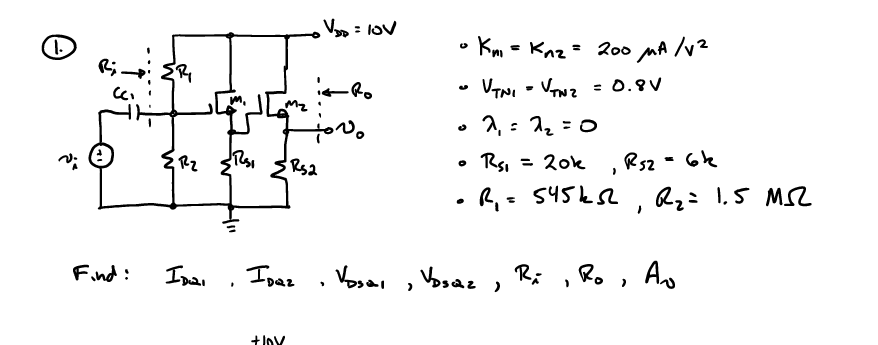 1.
V_DD = 10V
R_i
R_1
CC_1
M_1
M_2
R_o
v_o
v_i
R_2
R_S1
R_S2
• K_n1 = K_n2 = 200 μA/V²
• V_TN1 = V_TN2 = 0.8V
• λ_1 = λ_2 = 0
• R_S1 = 20k , R_S2 = 6k
• R_1 = 545kΩ , R_2 = 1.5 MΩ
Find: I_DQ1 , I_DQ2 , V_DSQ1 , V_DSQ2 , R_i , R_o , A_v
+10V